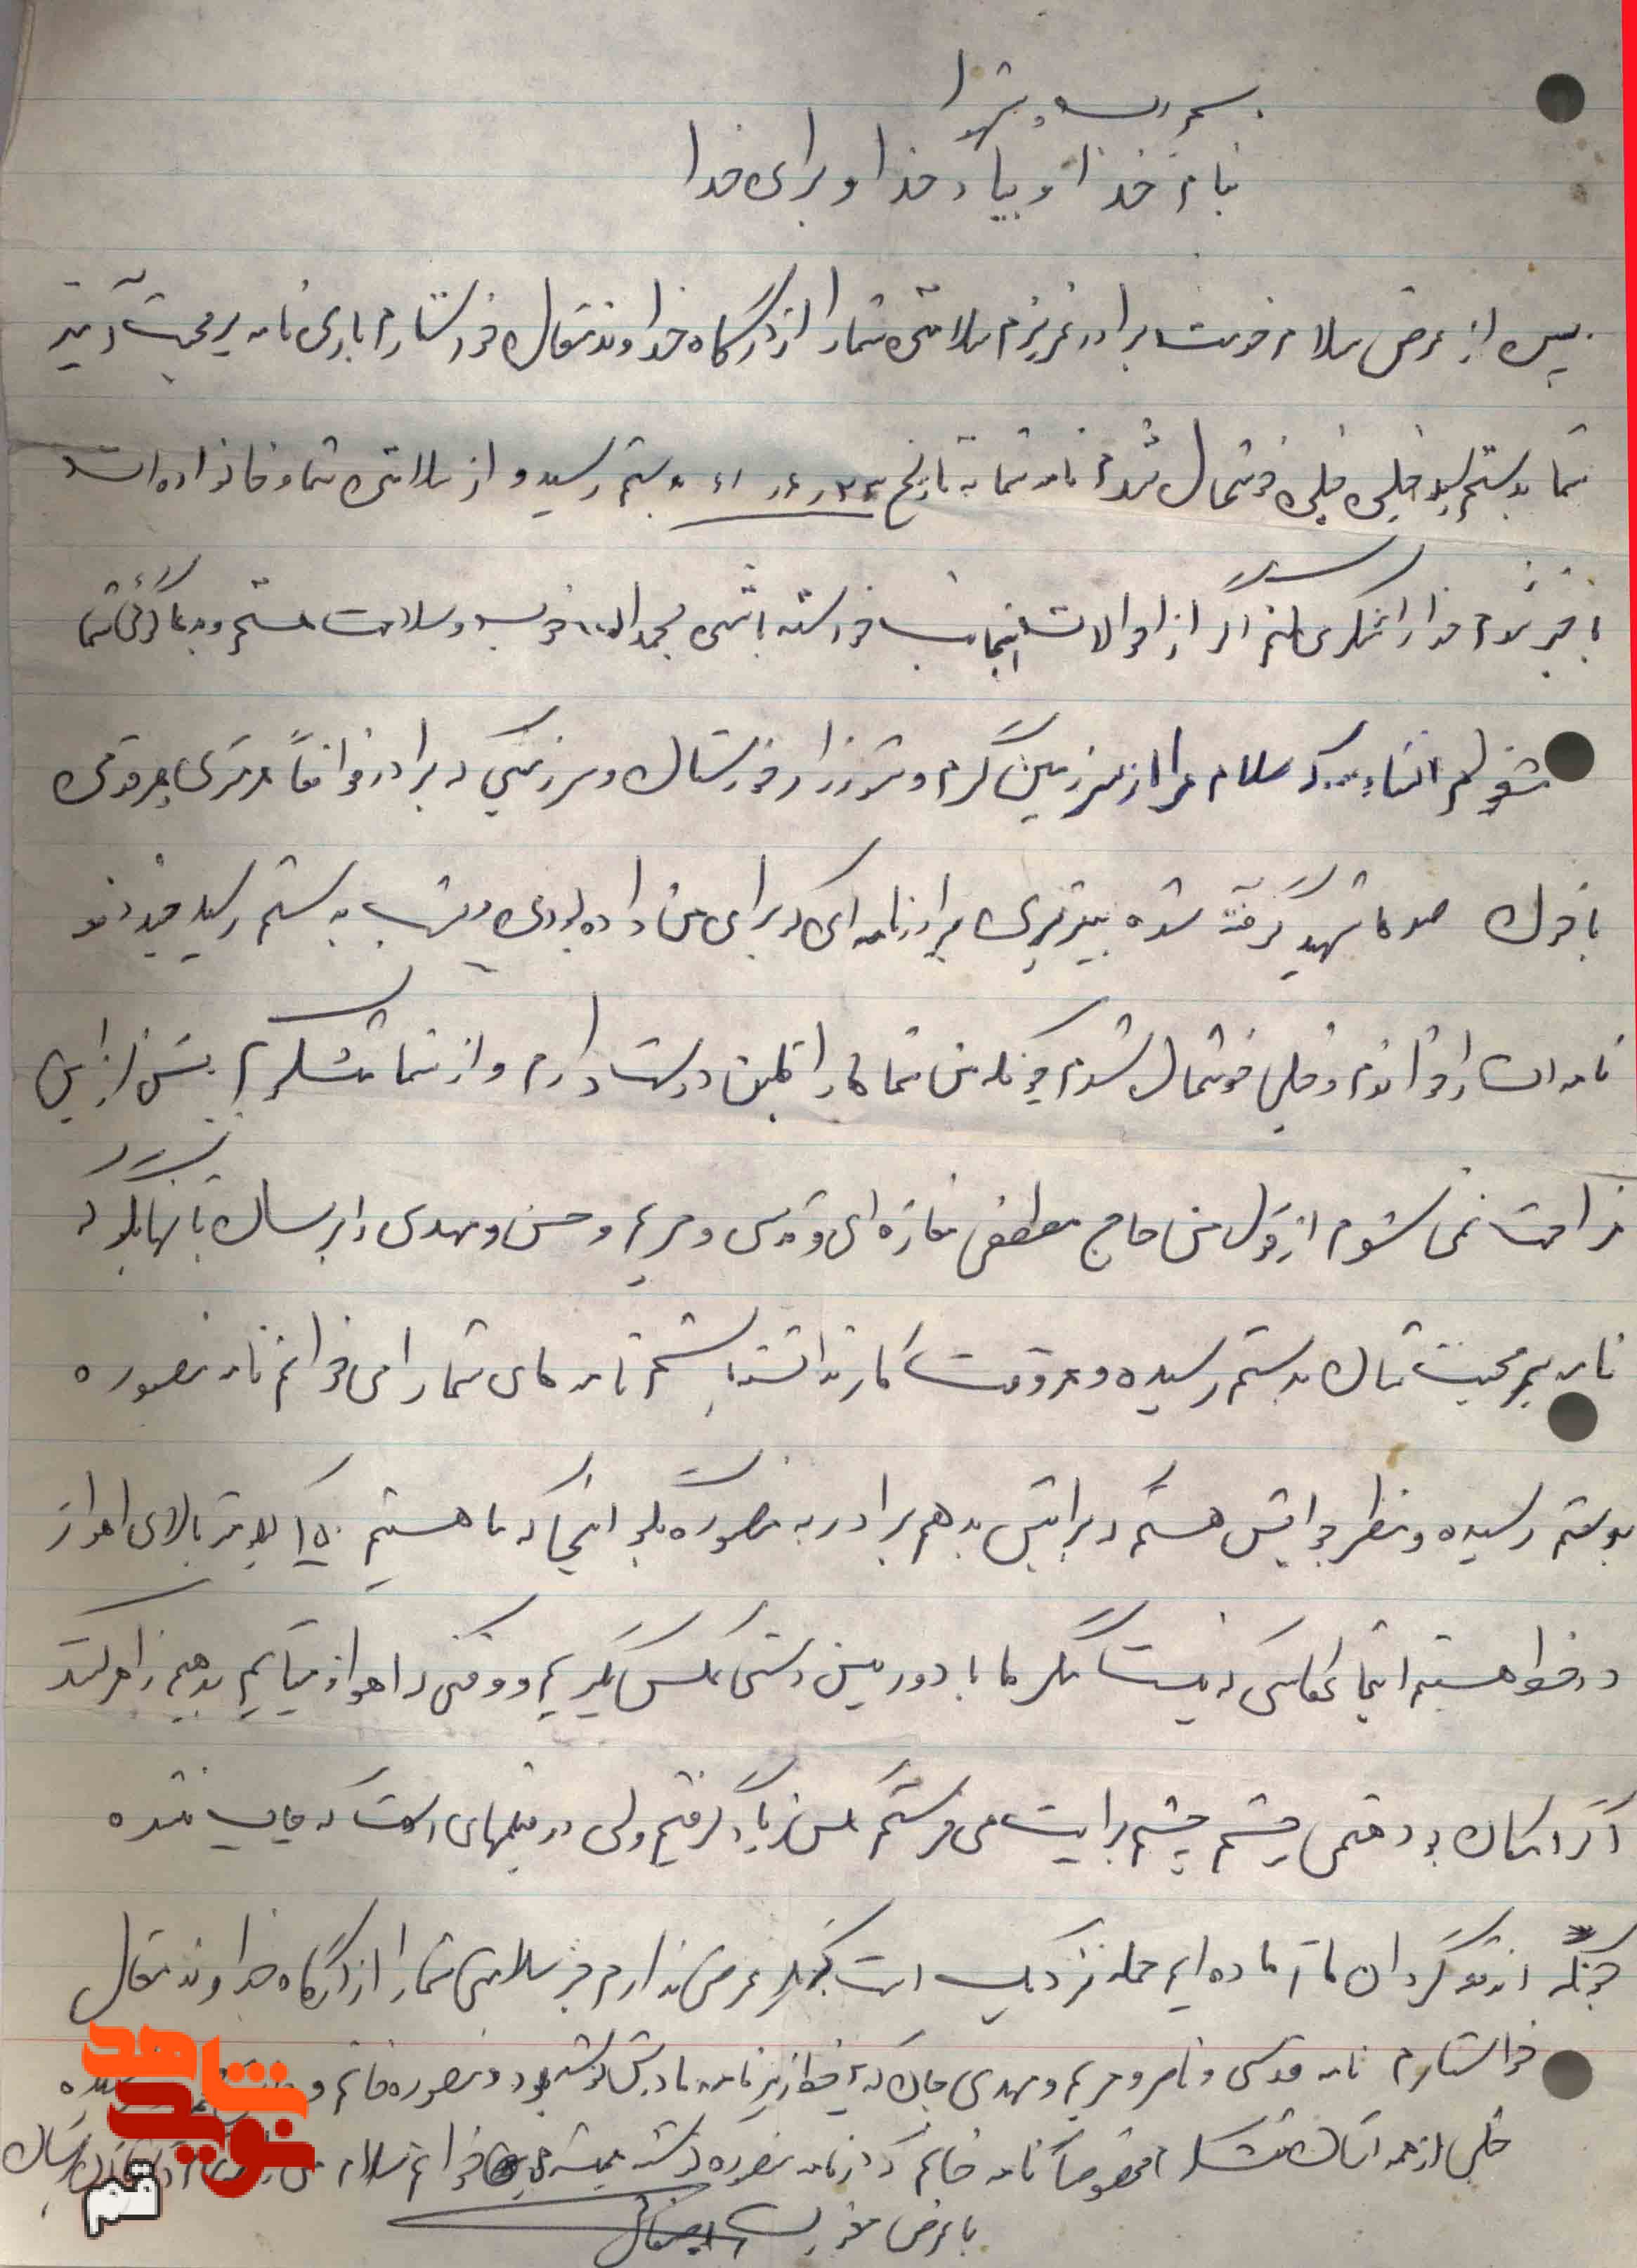 بسم رب الشهدا
بنام خدا و بیاد خدا و برای خدا
پس از عرض سلام خدمت برادر عزیزم سلامتی شما را از درگاه خداوند متعال خواستارم باری نامه پر محبت آمیز
شما بدستم رسید خیلی خیلی خوشحال شدم نامه شما به تاریخ بدستم رسید و از سلامتی شما و خانواده ات
با خبر شدم خدا را شکر می کنم اگر از احوالات اینجانب خواسته باشی بحمدالله خوب و سلامت هستم و بدعاگوئی شما
مشغولم انشاءالله که سلام مرا از سرزمین گرم و خوزستان و سرزمینی که برادر واقعاً هر متری هر وجبی
با خون صدها شهید گرفته شده بپذیری برادر نامه ای که برای من داده بودی دیشب به دستم رسید چند دفعه
نامه ات را خواندم و خیلی خوشحال شدم چونکه من شماها را قلبن دوست دارم و از شما متشکرم بیش از این
مزاحمت نمی شوم از قول من حاج مصطفی مغازه ای و قدسی و مریم و حسن و مهدی را برسان بآنها بگو که
نامه پر محبت تان بدستم رسیده و هر وقت کار نداشته باشم نامه های شما را می خوانم نامه منصوره
بدستم رسیده و منتظر جوابش هستم که برایش بدهم برادر به منصوره بگو اینجا که ما هستیم ۱۵۰ کیلومتر بالای اهواز
در خط هستیم اینجا عکاسی که نیست مگر ما با دوربین دستی عکس بگیریم و وقتی که اهواز میآیم بدهیم ظاهر کنند
اگر امکان بود حتمی چشم چشم برایت می فرستم عکس زیاد گرفتیم ولی در فیلمهای است که چاپ نشده
چونکه از تو گردان ما آماده ایم حمله نزدیک است دیگر عرضی ندارم جز سلامتی شما را از درگاه خداوند متعال
خواستارم نامه قدسی و ناصر و مریم و مهدی جان که خط از زیر نامه مادرش نوشته بود و منصوره خانم و
خیلی از همه آنان متشکرم مخصوصاً نامه خانم که در نامه منصوره نوشته همیشه می خوانم سلام من
با عرض معذرت
شاهد
نوید
قم